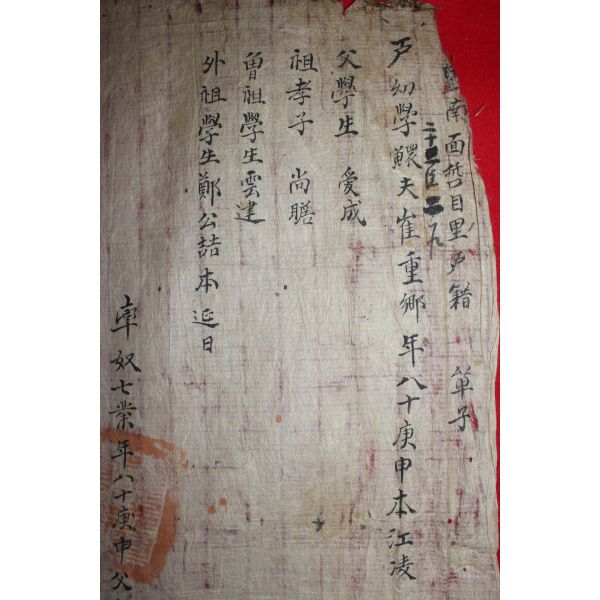 南面哲目里戶籍 單子
戶幼學鰥夫崔重鄉年八十庚申本江凌
父學生 愛成
祖孝子 尚賸
曾祖學生雲建
外祖學生鄭公喆本延日
率奴七業年八十庚申父